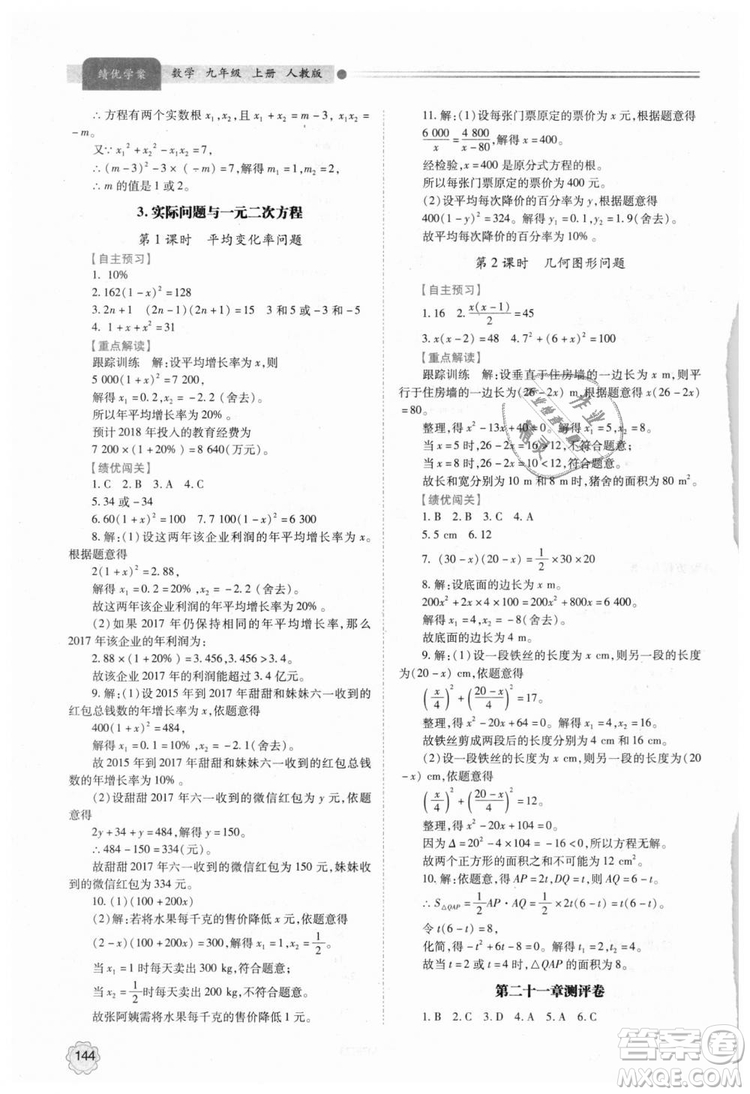 绩优学案 数学 九年级 上册 人教版
∴方程有两个实数根 x₁,x₂,∴x₁+x₂=m-3,x₁x₂=
-m。
又∵x₁²+x₂²-x₁x₂=7,
∴(m-3)²-3×(-m)=7,解得 m₁=1,m₂=2,
∴m 的值是 1 或 2。
3. 实际问题与一元二次方程
第 1 课时 平均变化率问题
【自主预习】
1. 10%
2. 162(1-x)²=128
3. 2n+1 (2n-1)(2n+1) 3 和 5 或 -3 和 -5
4. 1+x+x²=31
【重点解读】
跟踪训练 解:设平均增长率为 x,
5 000(1+x)²=7 200,
解得 x₁=0.2,x₂=-2.2(舍去),
所以年平均增长率为 20%。
预计 2018 年投入的教育经费为
7 200×(1+20%)=8 640(万元)。
【绩优闯关】
1. C 2. B 3. A 4. C
5. 34 或 -34
6. 60(1+x)²=100 7. 7 100(1-x)²=6 300
8. 解:(1)设这两年该企业利润的年增长率为 x。
根据题意得
2(1+x)²=2.88,
解得 x₁=0.2=20%,x₂=-2.2(舍去)。
故这两年该企业利润的年平均增长率为 20%。
(2)如果 2017 年仍保持相同的年平均增长率,那么
2017 年该企业的年利润为:
2.88×(1+20%)=3.456,3.456>3.4。
故该企业 2017 年的利润能超过 3.4 亿元。
9. 解:(1)设 2015 年到 2017 年甜甜和妹妹六一收到的
红包总钱数的年增长率为 x,依题意得
400(1+x)²=484,
解得 x₁=0.1=10%,x₂=-2.1(舍去)。
故 2015 年到 2017 年甜甜和妹妹六一收到的红包总钱
数的年增长率为 10%。
(2)设甜甜 2017 年六一收到的微信红包为 y 元,依
题意得
2y+34+y=484,解得 y=150。
∴484-150=334(元)。
故甜甜 2017 年六一收到的微信红包为 150 元,妹妹收
到的微信红包为 334 元。
10. (1)(100+200x)
(2)解:若将水果每千克的售价降低 x 元,根据题意得
(4-2-x)(100+200x)=300,解得 x₁=1,x₂=1/2。
当 x₁=1 时,每天卖出 300 kg,符合题意;
当 x₂=1/2 时每天卖出 200 kg,不符合题意。
故张阿姨需将水果每千克的售价降低 1 元。
144
11. 解:(1)设每张门票原定的票价为 x 元,根据题意得
6 000/x=4 800/(x-80),解得 x=400。
经检验,x=400 是原分式方程的根。
所以每张门票原定的票价为 400 元。
(2)设平均每次降价的百分率为 y,根据题意得
400(1-y)²=324。解得 y₁=0.1,y₂=1.9(舍去)。
故平均每次降价的百分率为 10%。
第 2 课时 几何图形问题
【自主预习】
1. 16 2. x(x-1)/2=45
3. x(x-2)=48 4. x²+(6+x)²=10²
【重点解读】
跟踪训练 解:设垂直于住房墙的一边长为 x m,平
行于住房墙的一边长为(26-2x) m,根据题意得 x(26-2x)
=80。
整理,得 x²-13x+40=0,解得 x₁=5,x₂=8。
当 x=5 时,26-2x=16>12,不符合题意;
当 x=8 时,26-2x=10<12,符合题意。
故长和宽分别为 10 m,8 m 时,猪舍的面积为 80 m²。
【绩优闯关】
1. B 2. B 3. C 4. A
5. 5 cm 6. 12
7. (30-x)(20-x)=1/2×30×20
8. 解:设底面的边长为 x m,根据题意得
200x²+2x×4×100=6 400,
解得 x₁=4,x₂=-8(舍去)。
故底面边长为 4 m。
9. 解:(1)设一段铁丝的长度为 x cm,则另一段的长度
为(20-x) cm,依题意得
(x/4)²+((20-x)/4)²=17。
整理,得 x²-20x+64=0,解得 x₁=4,x₂=16。
故铁丝剪成两段后的长度分别为 4 cm,16 cm。
(2)设一段铁丝的长度为 x cm,则另一段的长度为(20
-x) cm,依题意得
(x/4)²+((20-x)/4)²=12。
整理,得 x²-20x+104=0。
因为 Δ=(-20)²-4×1×104=-16<0,所以方程无解。
故两个正方形的面积之和不可能等于 12 cm²。
10. 解:依题意,得 AP=2t,DQ=t,则 AQ=6-t。
∴S△QAP=1/2AP·AQ=1/2×2t(6-t)=t(6-t)。
令 t(6-t)=8,
化简,得 -t²+6t-8=0,解得 t₁=2,t₂=4。
故当 t=2 或 t=4 时,△QAP 的面积等于 8 cm²。
第二十一章测评卷
1. C 2. B 3. D 4. A 5. B 6. B 7. B